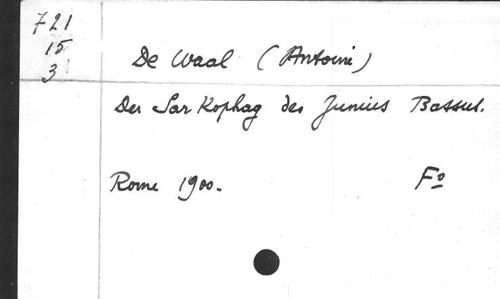 721
15
3
De Waal (Antoine)
Der Sarkophag des Junius Bassus.
Rome 1900. Fo